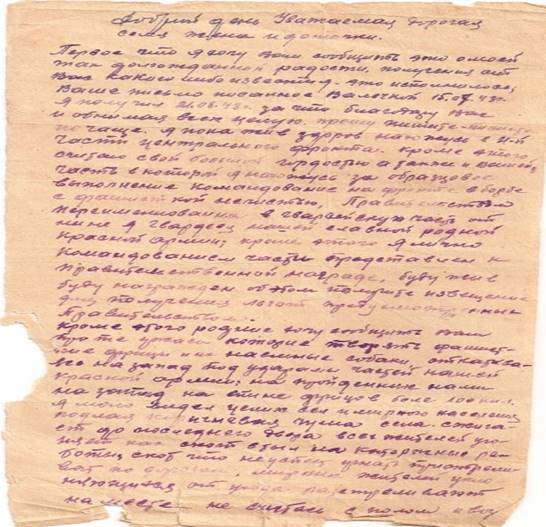 Добрый день Уважаемая Дорогая
семя жена и доточки.
Первое что я хочу Вам сообщить это о моей
так долгожданной радости, получения от
Вас какого либо известия. это исполнилось,
Ваше письмо писанное Валечкой 15.07.43г.
Я получил 21.08.43г. за что благодарю Вас
и обнимая всех целую, прошу пишите
по чаще. Я пока жив здоров нахожусь в Н-й
части центрального фронта. кроме этого
считаю свой большой гордостью а также и Вашей,
часть в которой я нахожусь за образцовое
выполнение командования на фронте в борьбе
с фашисткой нечистью, Правительством
переименована в гвардейскую часть от
ныне я гвардеец нашей славной родной
красной армии, кроме этого я лично
командованием части представлен к
правительственной награде, буду жив
буду награжден об этом получите извещение
для получения льгот
Правительством.
кроме этого родные хочу сообщить Вам
про те ужасы которые творять фашист-
кие фрицы и их наемные собаки откатыва-
ясь на запад под ударами частей нашей
красной армии, на пройденные нами
на запад на спине фрицов боле 100 килом.
я мало видел целих сел и мирного населения
подлая чума села сжига-
ет до последнего двора всех жителей уго-
няет как скот в тыл на каторжные ра-
боты, скот что не успел угнать пристрели-
вают по дорогам, мирных жителей укло-
няющихся от угона растреливают
на месте не считаясь с полом и воз